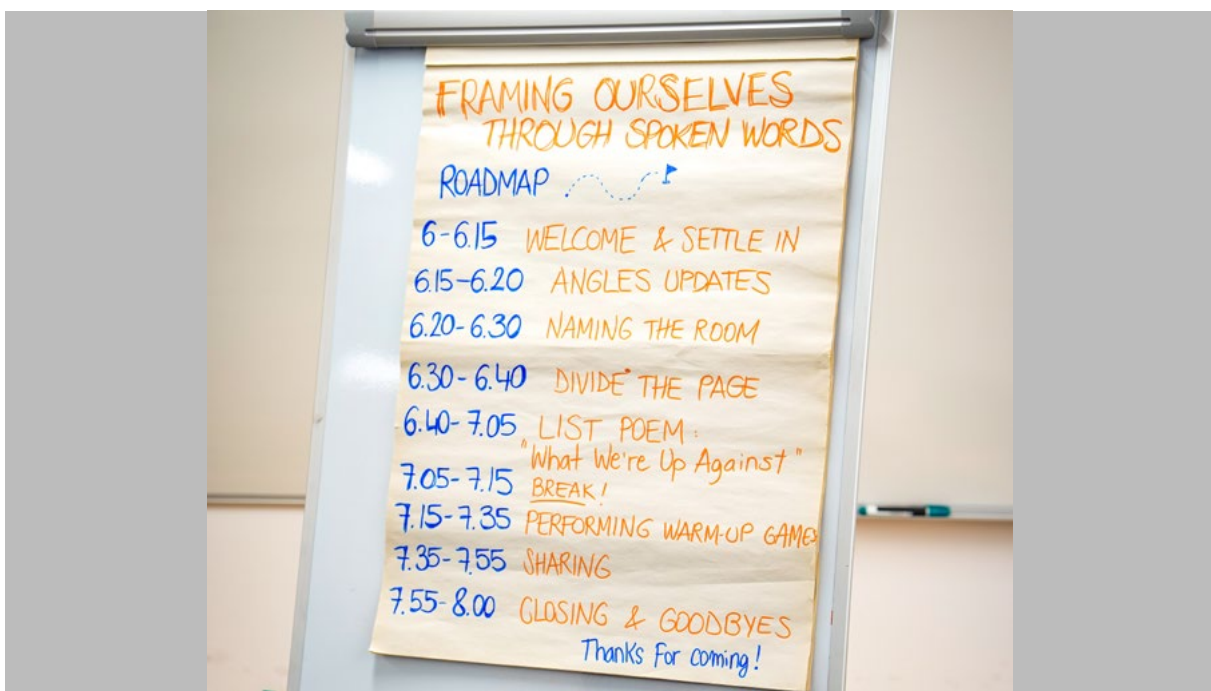 FRAMING OURSELVES
THROUGH SPOKEN WORDS
ROADMAP
6-6.15 WELCOME & SETTLE IN
6.15-6.20 ANGLES UPDATES
6.20-6.30 NAMING THE ROOM
6.30-6.40 DIVIDE THE PAGE
6.40-7.05 LIST POEM:
"What We're Up Against"
7.05-7.15 BREAK!
7.15-7.35 PERFORMING WARM-UP GAMES
7.35-7.55 SHARING
7.55-8.00 CLOSING & GOODBYES
Thanks For coming!